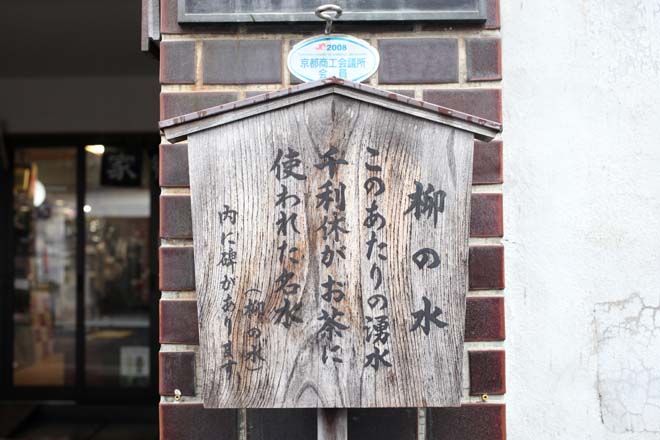 2008
京都商工会議所
会員
柳の水
このあたりの湧水
千利休がお茶に
使われた名水
(柳の水)
内に碑があります
家